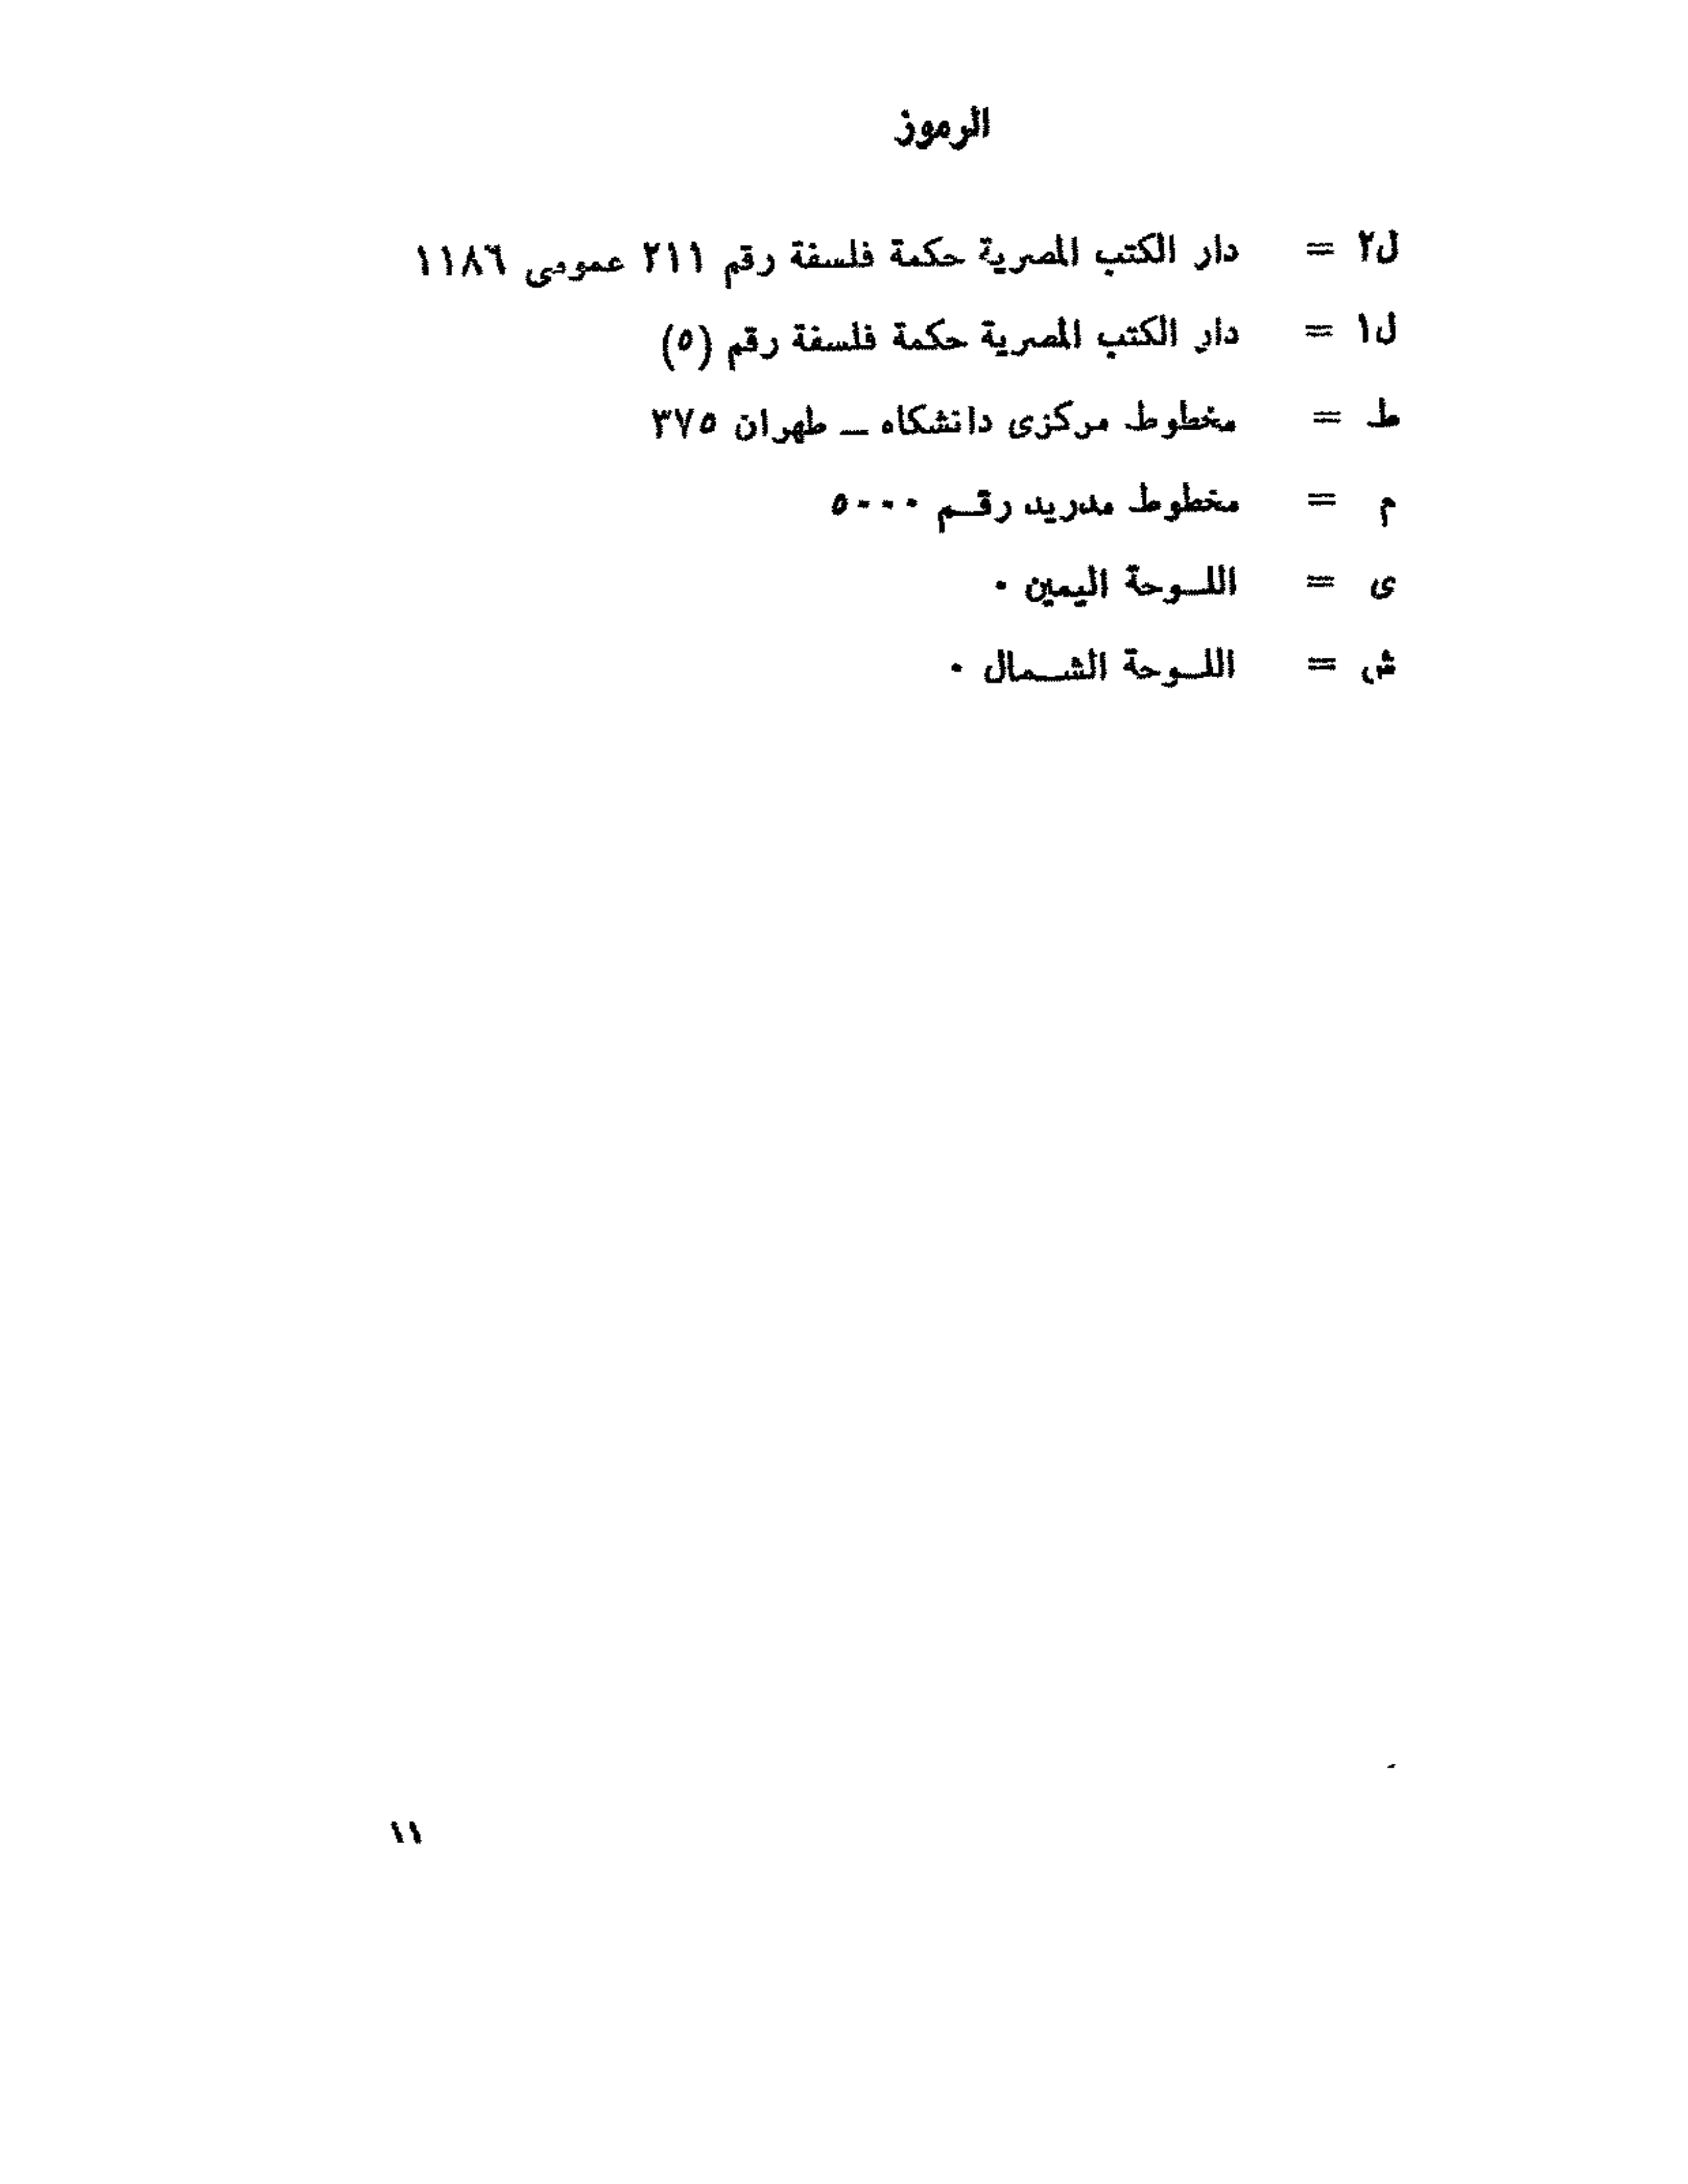 الرموز
ل٢ = دار الكتب المصرية حكمة فلسفة رقم ٢١١ عمومى ١١٨٦
ل١ = دار الكتب المصرية حكمة فلسفة رقم (٥)
ط = مخطوط مركزى دانشكاه ــ طهران ٣٧٥
م = مخطوط مدريد رقـم ٥٠٠٠
ى = اللـوحة اليمين ٠
ش = اللـوحة الشـمال ٠
١١